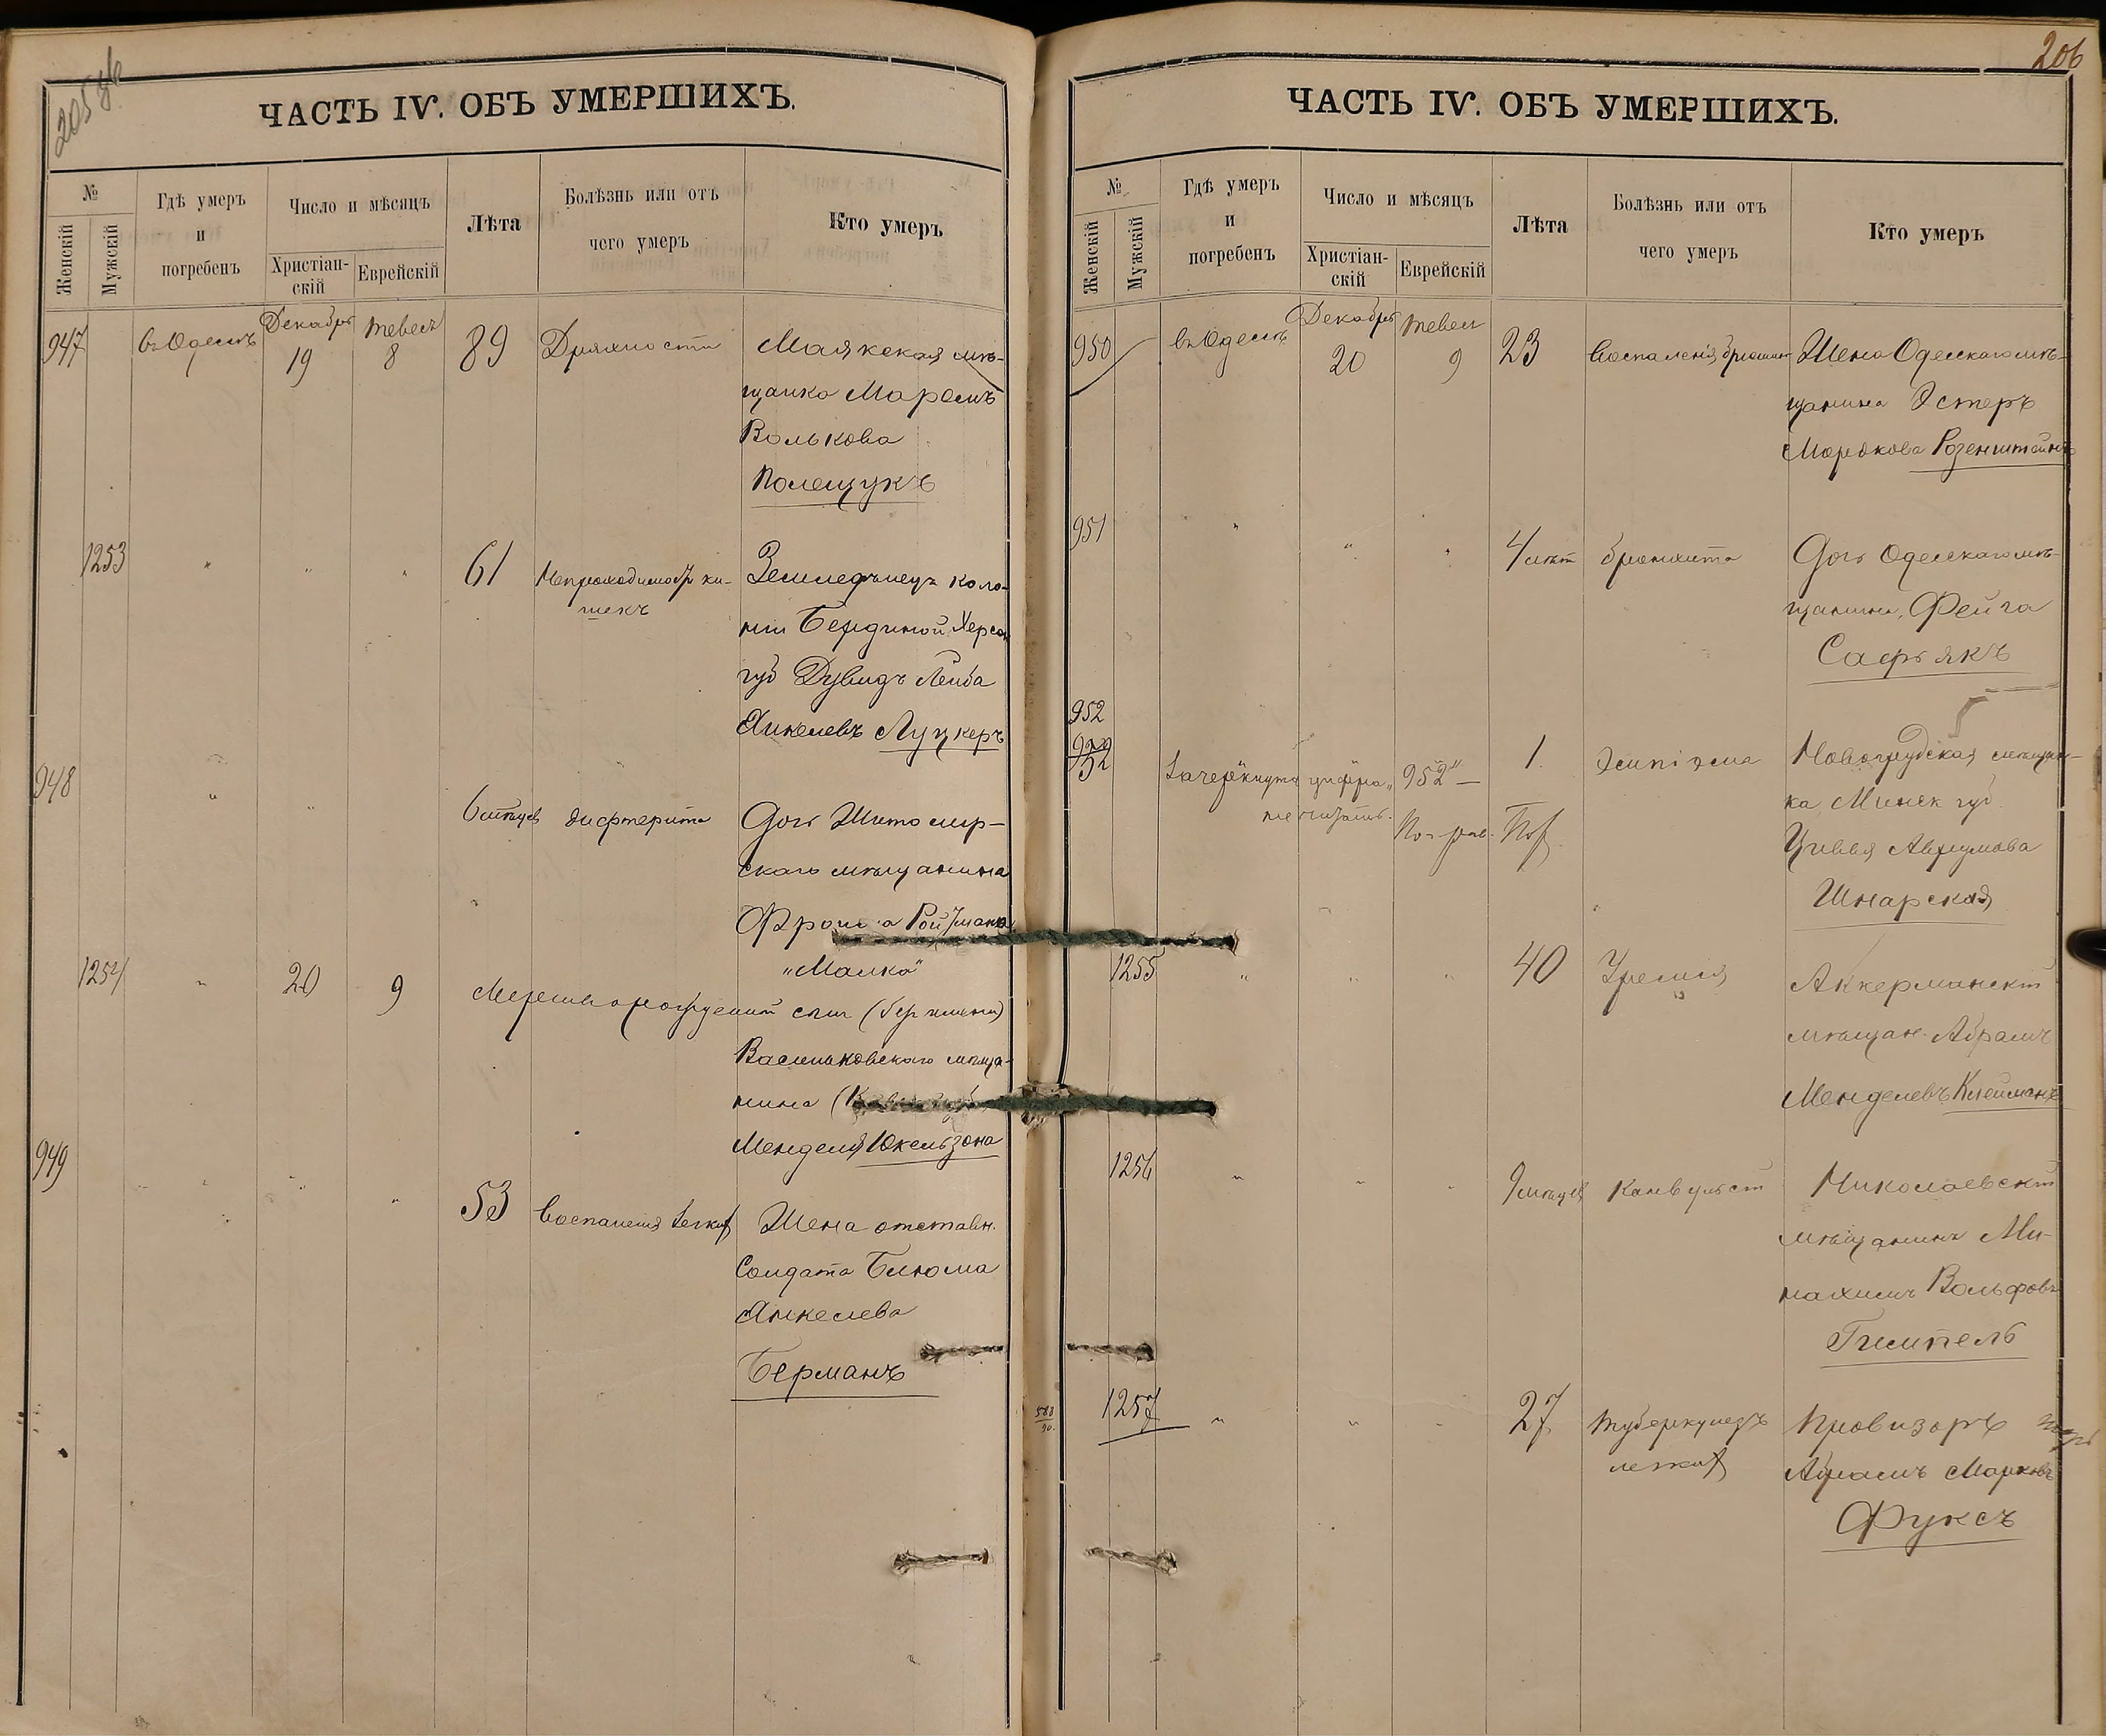 205 об
ЧАСТЬ IV. ОБЪ УМЕРШИХЪ.
№
Женскій
Мужскій
Гдѣ умеръ
и
погребенъ
Число и мѣсяцъ
Христіан-
скій
Еврейскій
Лѣта
Болѣзнь или отъ
чего умеръ
Кто умеръ
947 въ Одессѣ Декабрь 19 Тевесъ 8 89 Дряхлости Маякская мѣ-
щанка Маремъ
Волькова
Полещукъ
1253 " " " 61 Непроходимость ки-
шекъ
Земледѣлецъ коло-
ніи Херсон
губ Дувидъ Лейба
Янкелевъ Луцкеръ
948 " " 6 мѣсяцев дифтерита Дочь Житомир-
скаго мѣщанина
Фроима Ройтмана
„Малка"
1254 " 20 9 Мертворожденный сын (без имени)
Васильковскаго мѣща-
нина
Менделя Юкельзона
949 " " " 53 Воспаленія легких Жена отставн.
Солдата Блюма
Янкелева
Берманъ
206
ЧАСТЬ IV. ОБЪ УМЕРШИХЪ.
№
Женскій
Мужскій
Гдѣ умеръ
и
погребенъ
Число и мѣсяцъ
Христіан-
скій
Еврейскій
Лѣта
Болѣзнь или отъ
чего умеръ
Кто умеръ
950 въ Одессѣ Декабрь 20 Тевесъ 9 23 Воспаленія брюшин Жена Одесскаго мѣ-
щанина Эстеръ
Мордкова Розенштейнъ
951 " " " 4 лѣт бронхита Дочь Одесскаго мѣ-
щанина, Фейга
Сафьякъ
952
Зачеркнута цифра „952" —
не читать.
1. Эмпіэма Новогрудская мѣщан-
ка, Минск губ
Цивья Аврумова
Шнарская
1255 " " " 40 Уремія Аккерманскій
мѣщан. Абрамъ
Менделевъ Клейманъ
1256 " " " 9 мѣсяцев Канвульсій Николаевскій
мѣщанинъ Ми-
нахимъ Вольфовъ
Гимпель
588
90.
1257 " " " 27 туберкулезъ
легких
Провизоръ
Абрамъ Марковъ
Фуксъ